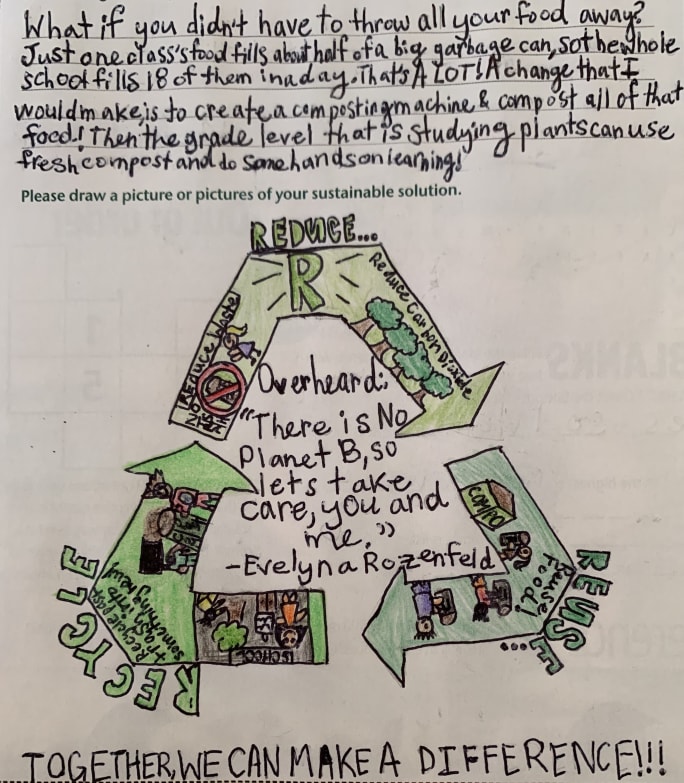 What if you didn't have to throw all your food away?
Just one class's food fills about half of a big garbage can, so the whole
school fills 18 of them in a day. That's A LOT! A change that I
would make, is to create a composting machine & compost all of that
food! Then the grade level that is studying plants can use
fresh compost and do some hands on learning!
Please draw a picture or pictures of your sustainable solution.
REDUCE...
R
Reduce waste
Reduce Carbon Dioxide
Overheard:
"There is No
Planet B, so
lets take
care, you and
me."
-Evelyna Rozenfeld
COMPO
REUSE...
Reuse
Food!
RECYCLE
something new!
SCHOOL
TOGETHER, WE CAN MAKE A DIFFERENCE!!!